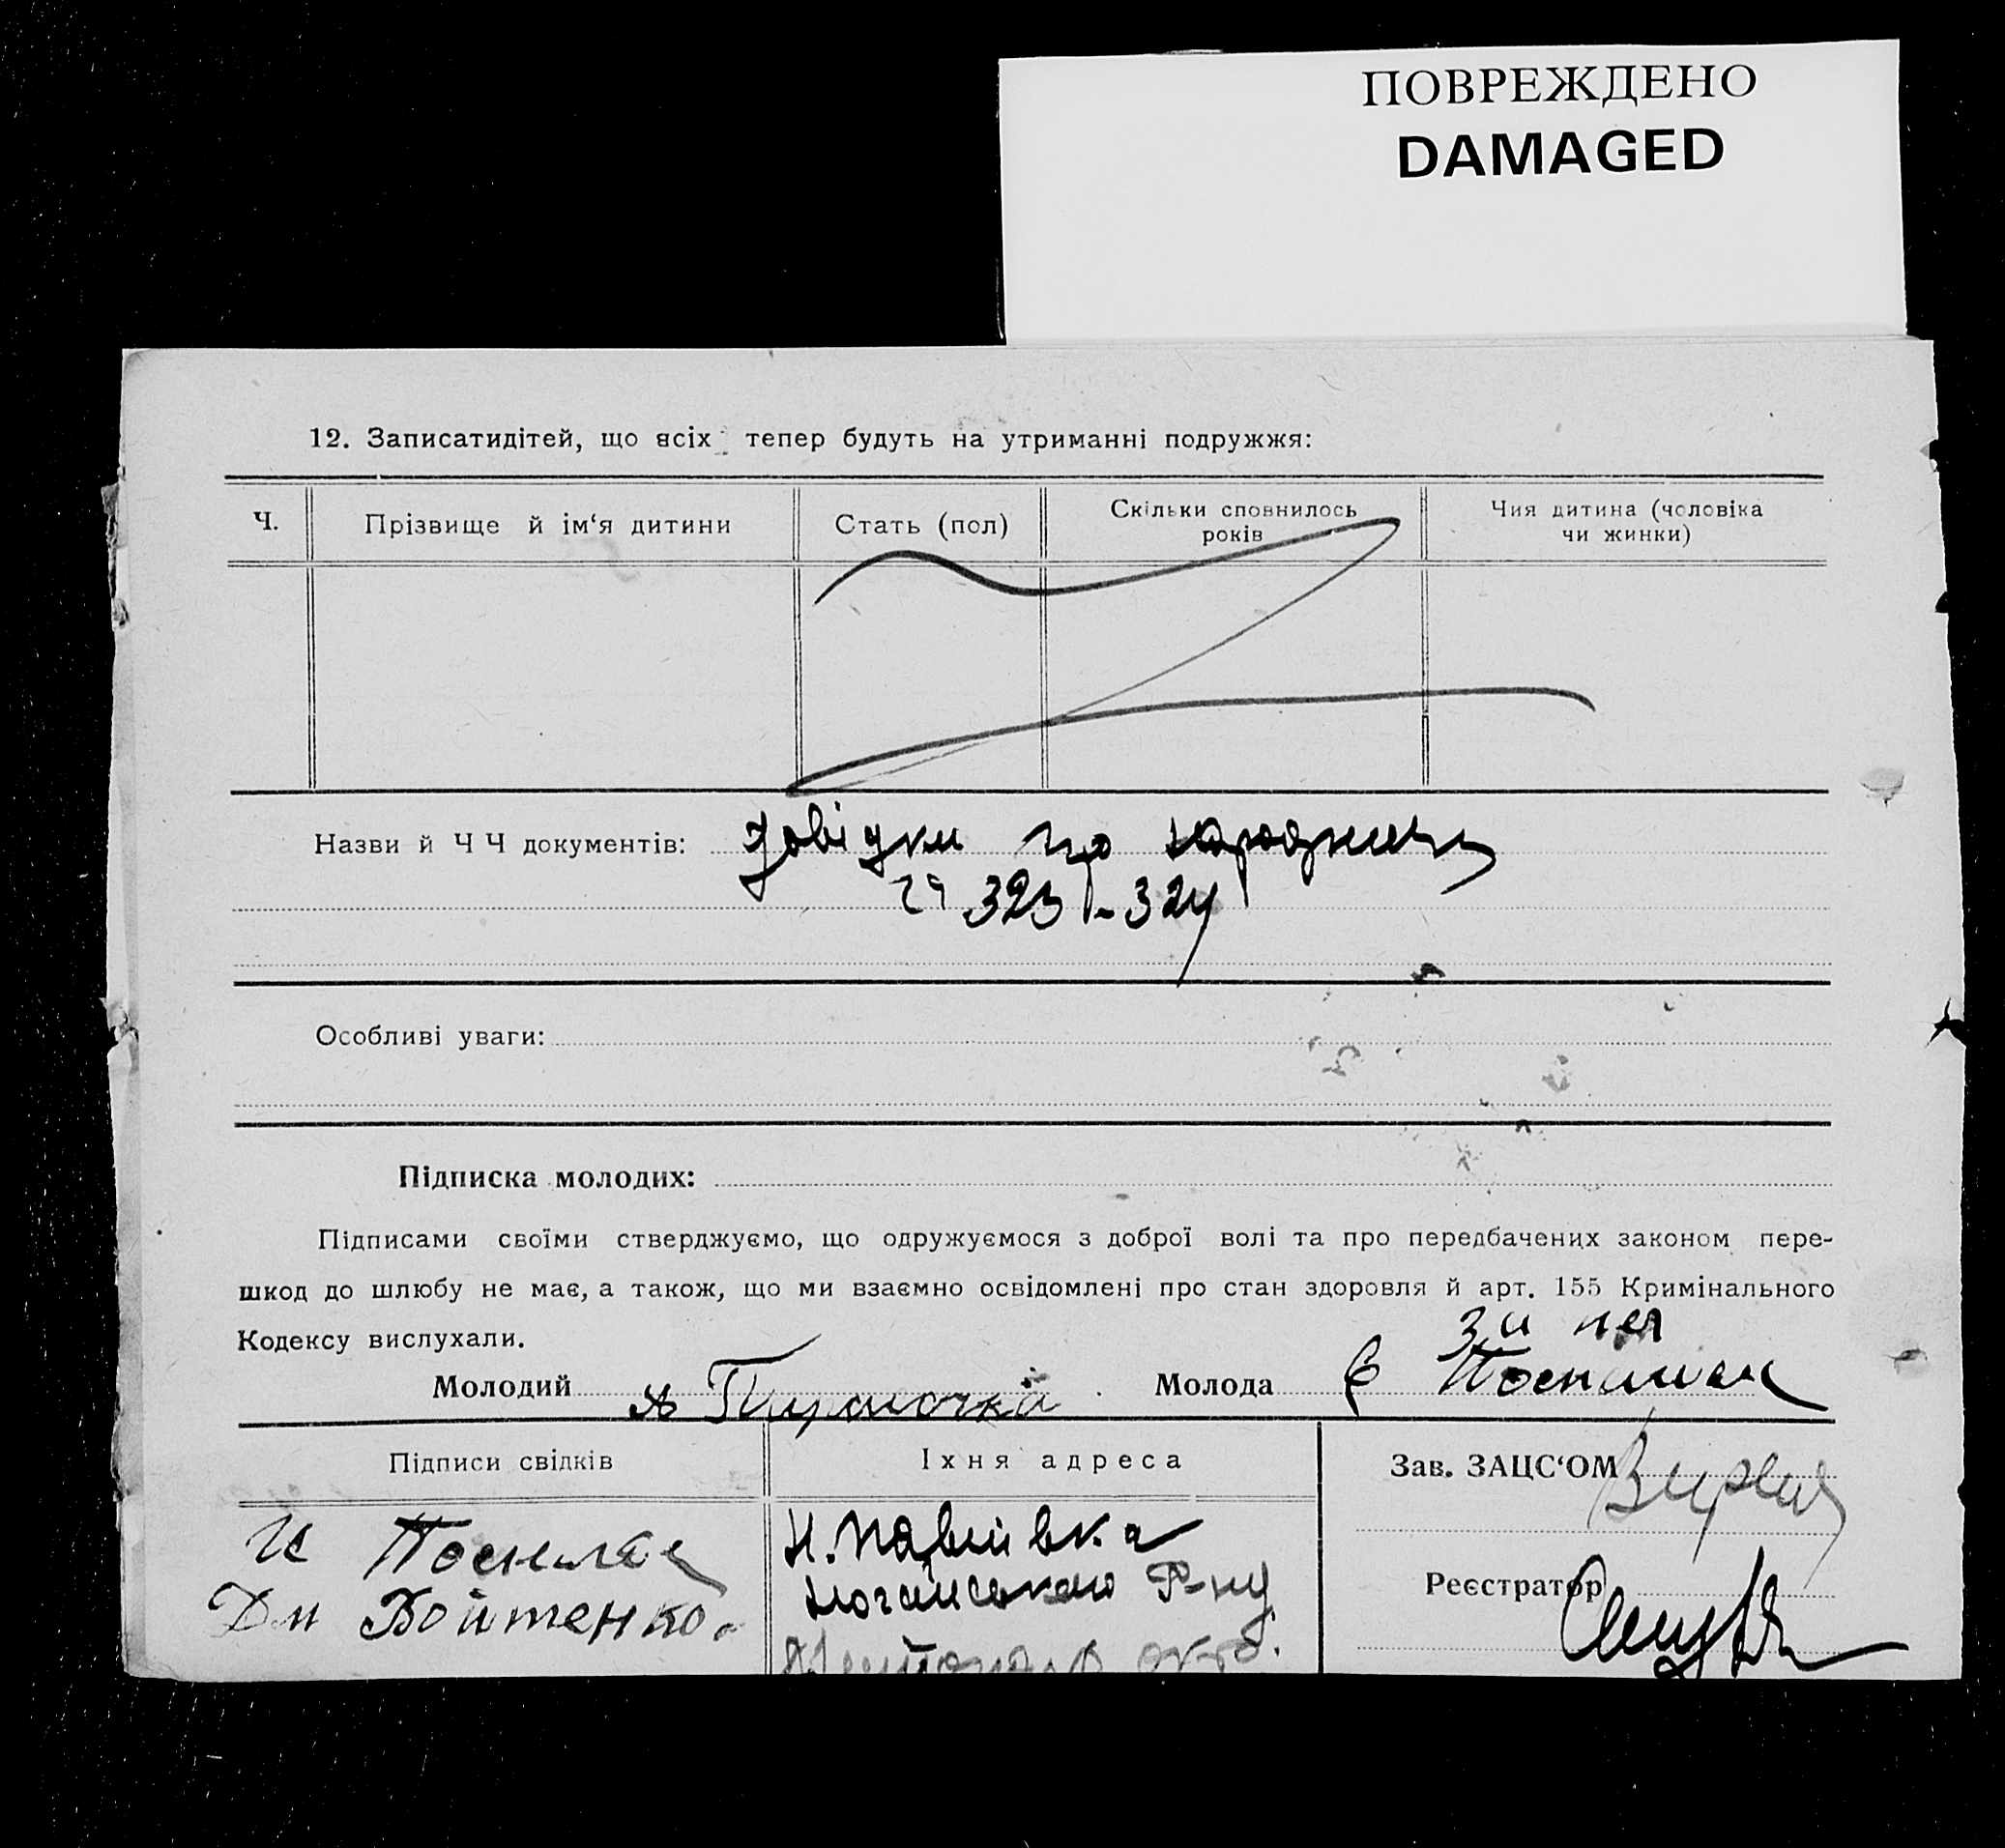 ПОВРЕЖДЕНО
DAMAGED
12. Записатидітей, що всіх тепер будуть на утриманні подружжя:
Ч.
Прізвище й ім‘я дитини
Стать (пол)
Скільки сповнилось
років
Чия дитина (чоловіка
чи жинки)
Назви й Ч Ч документів: довідки про
323 - 324
Особливі уваги:
Підписка молодих:
Підписами своїми стверджуємо, що одружуємося з доброї волі та про передбачених законом пере-
шкод до шлюбу не має, а також, що ми взаємно освідомлені про стан здоровля й арт. 155 Кримінального
Кодексу вислухали.
за неї
Молодий
Молода
Підписи свідків
Їхня адреса
Зав. ЗАЦС‘ОМ
Н. Павлівка
Ногайського Р-ну
окр.
Дм Войтенко.
Реєстратор